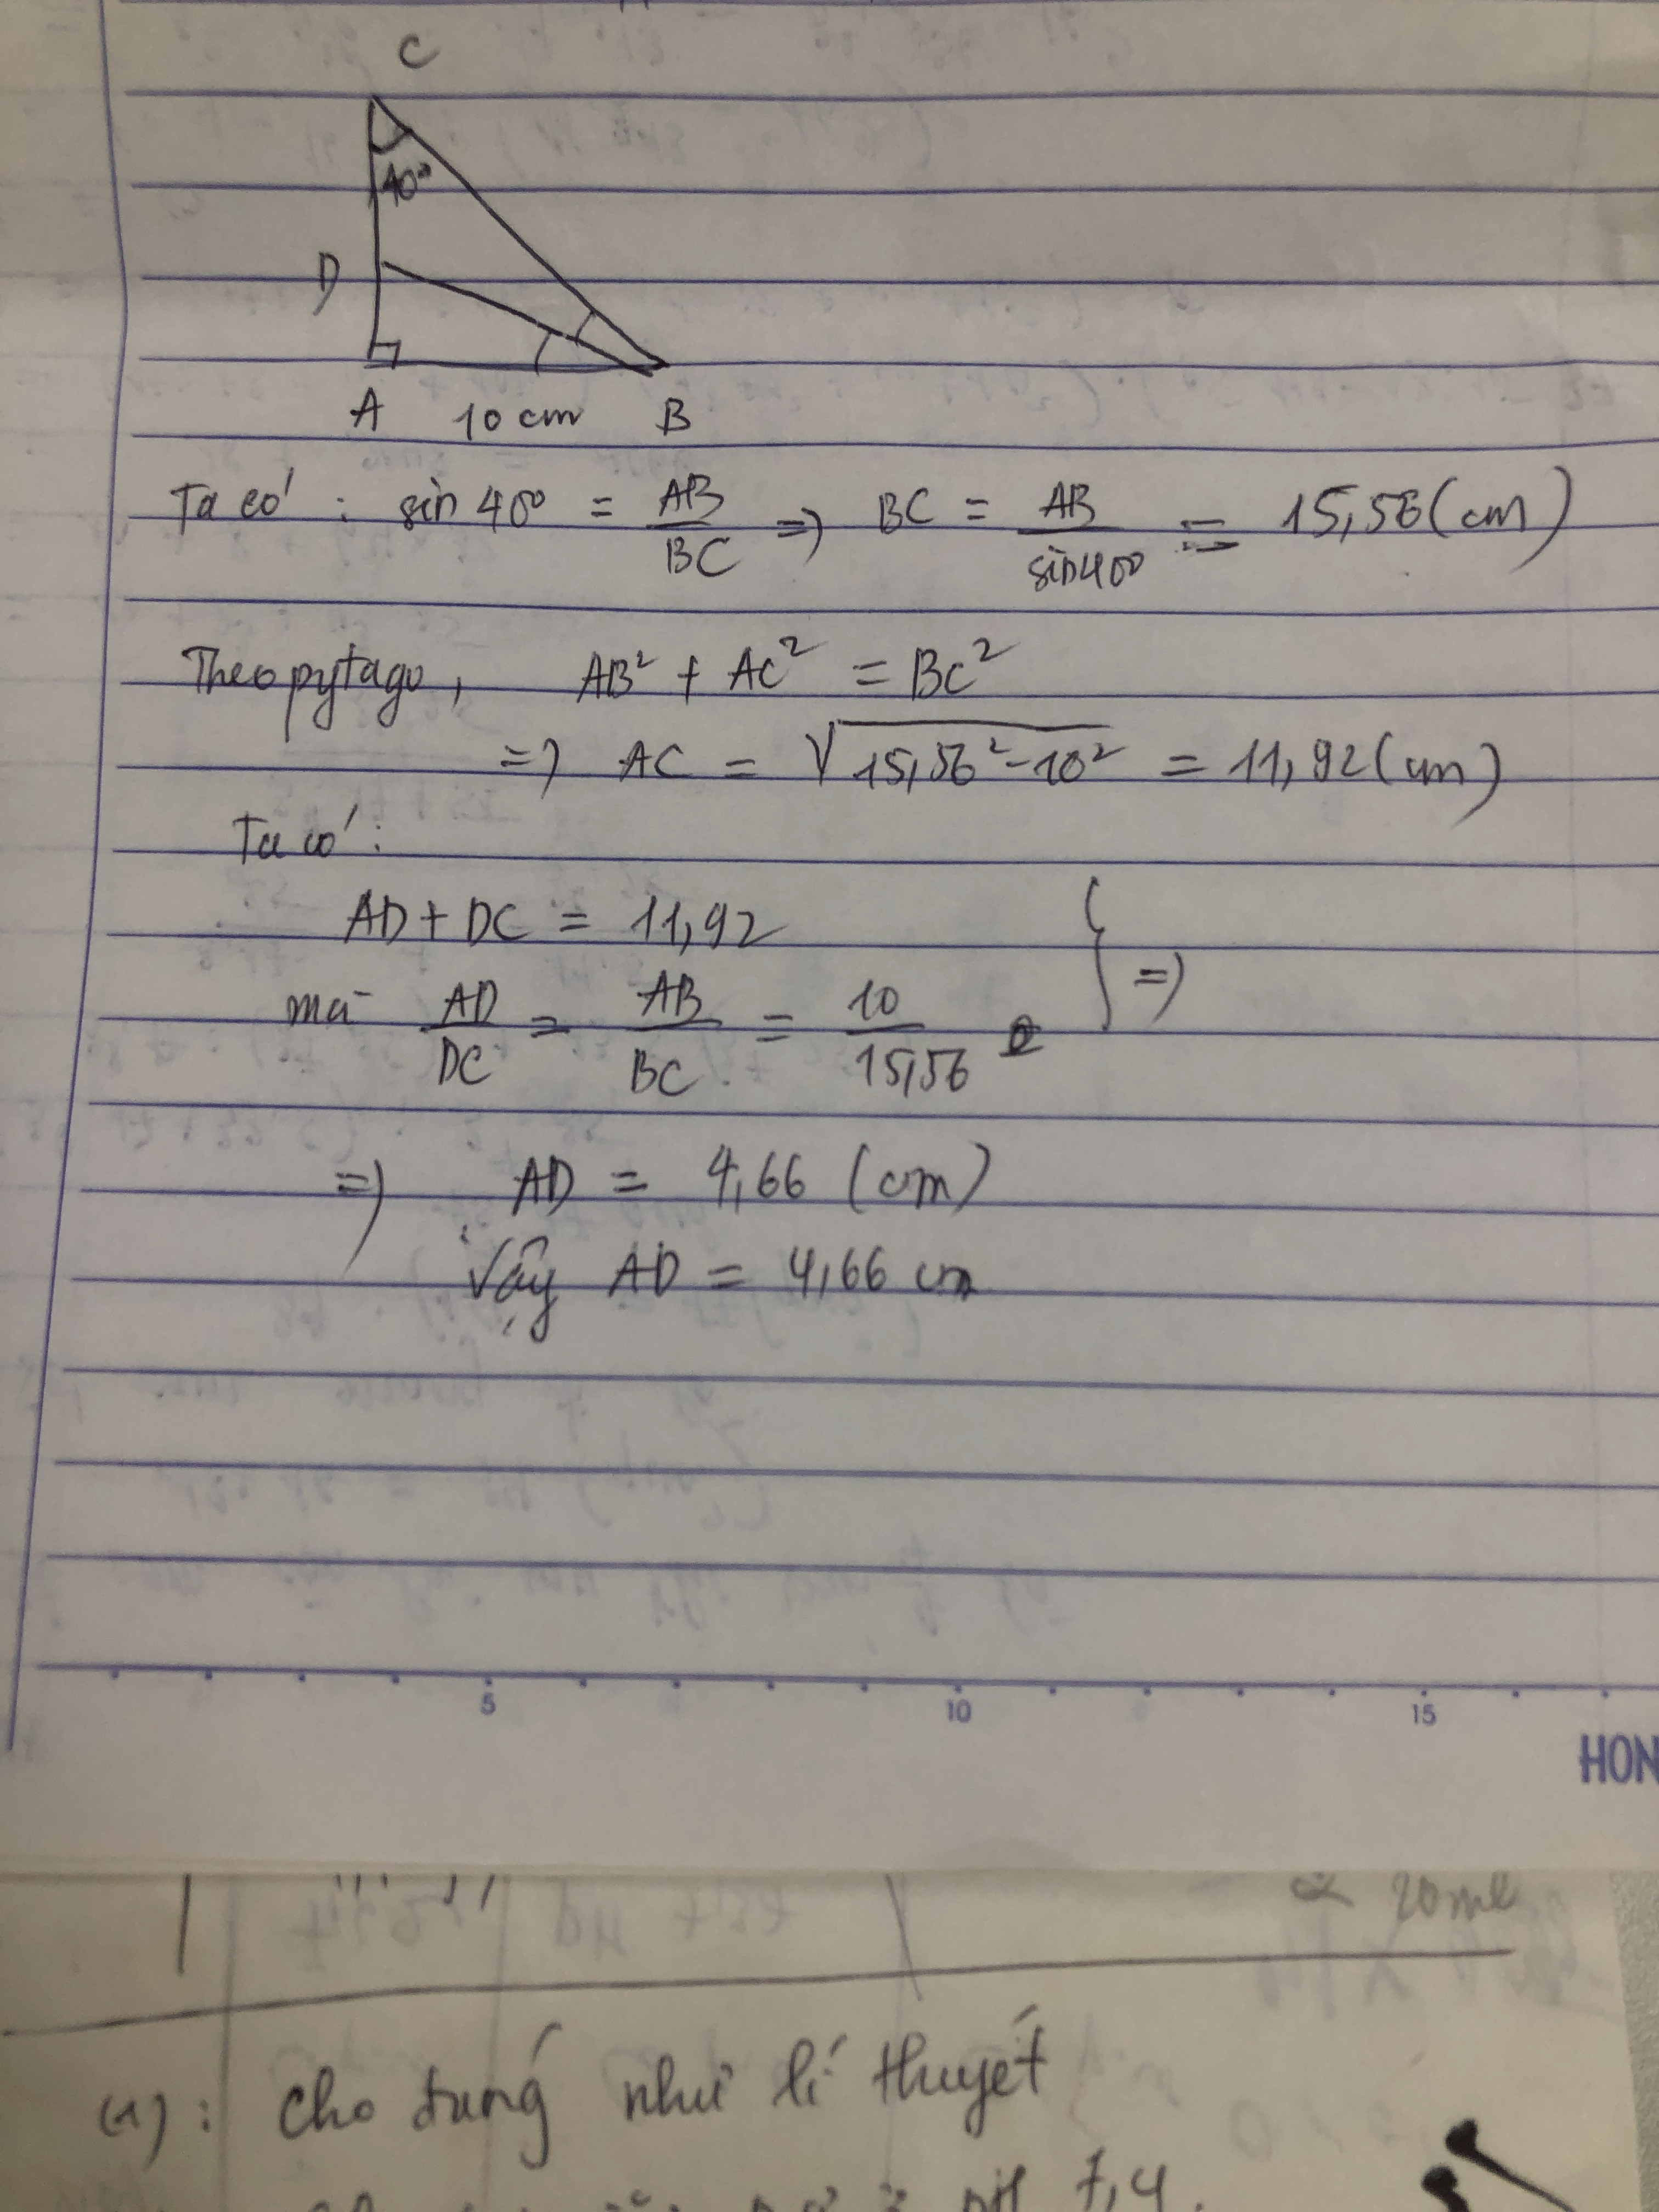 C
40°
D
A 10 cm B
Ta có : sin 40° = AB/BC => BC = AB/sin40° = 15,56 (cm)
Theo pytago, AB² + AC² = BC²
=> AC = √(15,56² - 10²) = 11,92 (cm)
Ta có :
AD + DC = 11,92
mà AD/DC = AB/BC = 10/15,56 } =>
=> AD = 4,66 (cm)
Vậy AD = 4,66 cm
5 10 15
HON
20 ml
(1): cho đúng như lí thuyết
pH 7,4.